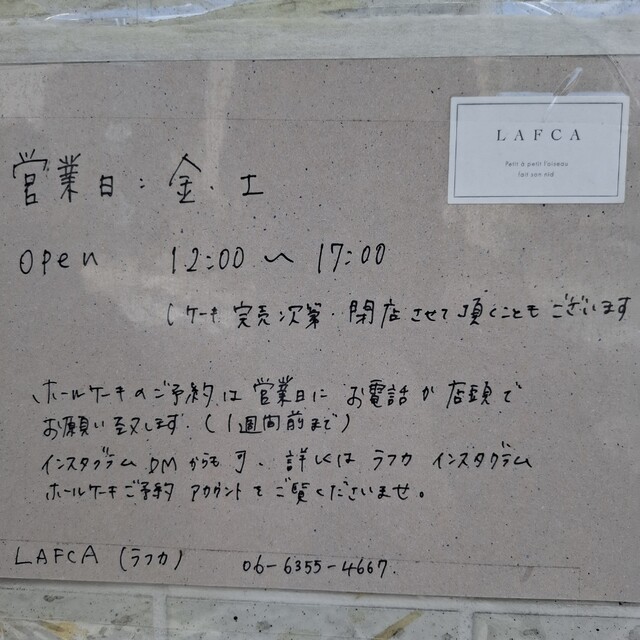 LAFCA
Petit à petit l'oiseau
fait son nid
営業日：金．土
open 12:00 〜 17:00
(ケーキ完売次第．閉店させて頂くこともございます
ホールケーキのご予約は営業日にお電話か店頭で
お願い致します．(1週間前まで)
インスタグラムDMからも可、詳しくはラフカ インスタグラム
ホールケーキご予約 アカウントをご覧くださいませ。
LAFCA (ラフカ) 06-6355-4667.